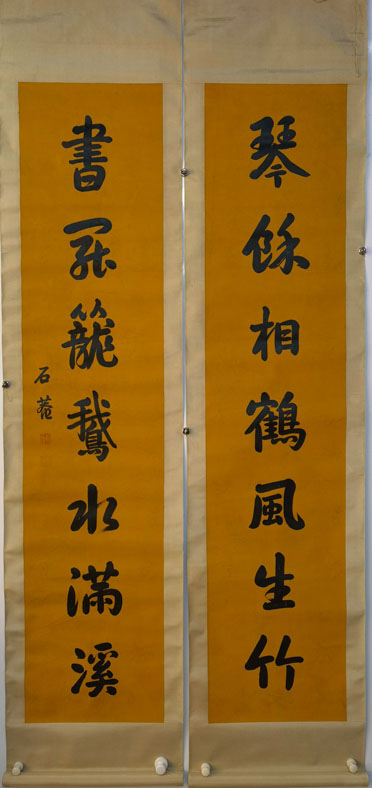 琴餘相鶴風生竹
書罷籠鵝水滿溪
石菴